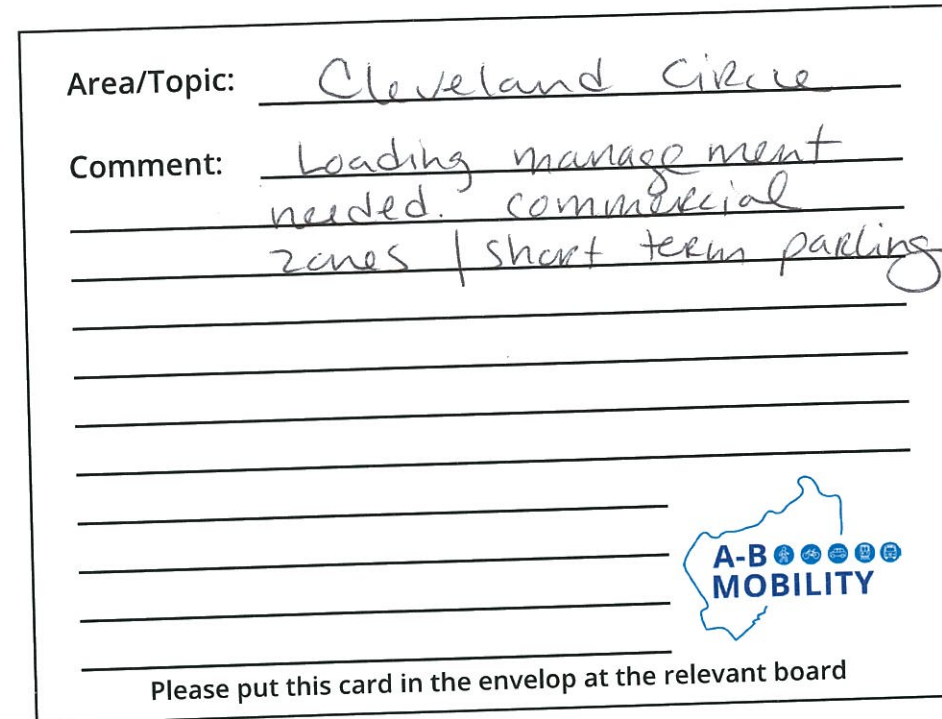 Area/Topic: Cleveland Circle
Comment: Loading management
needed. commercial
zones / short term parking
A-B
MOBILITY
Please put this card in the envelop at the relevant board